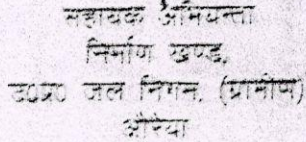 सहायक अभियन्ता
निर्माण खण्ड,
उ0प्र0 जल निगम, (ग्रामीण)
औरैया